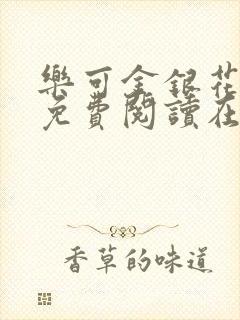 樂可金銀花
免費閱讀在
香草的味道